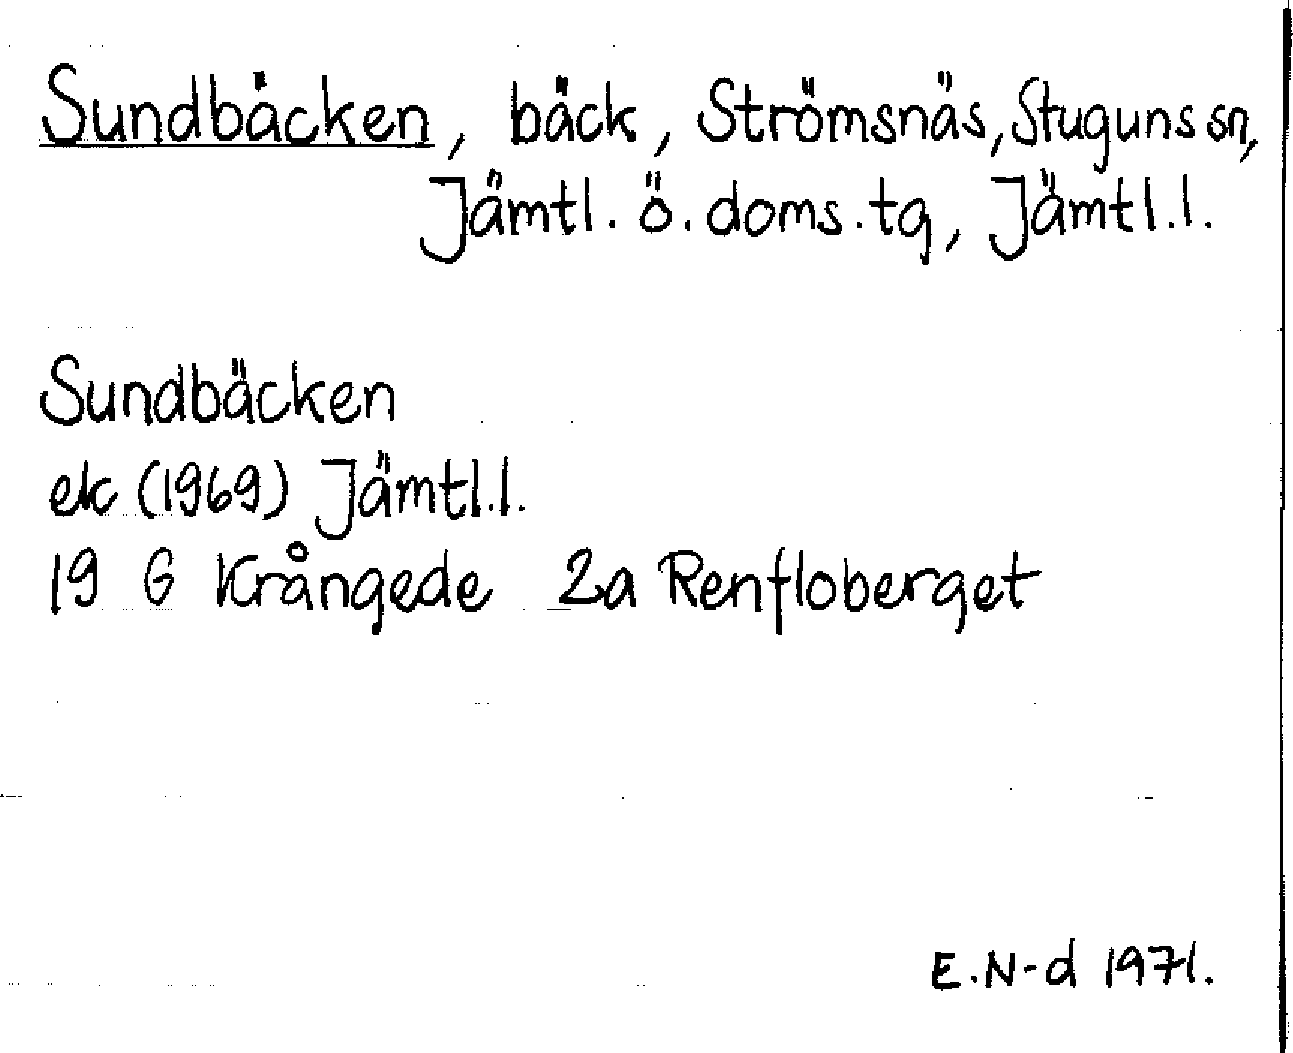 Sundbäcken, bäck, Strömsnäs, Stuguns sn,
Jämtl. ö. doms. tg, Jämtl. l.
Sundbäcken
ek (1969) Jämtl. l.
19 G Krångede 2a Renfloberget
E. N-d 1971.